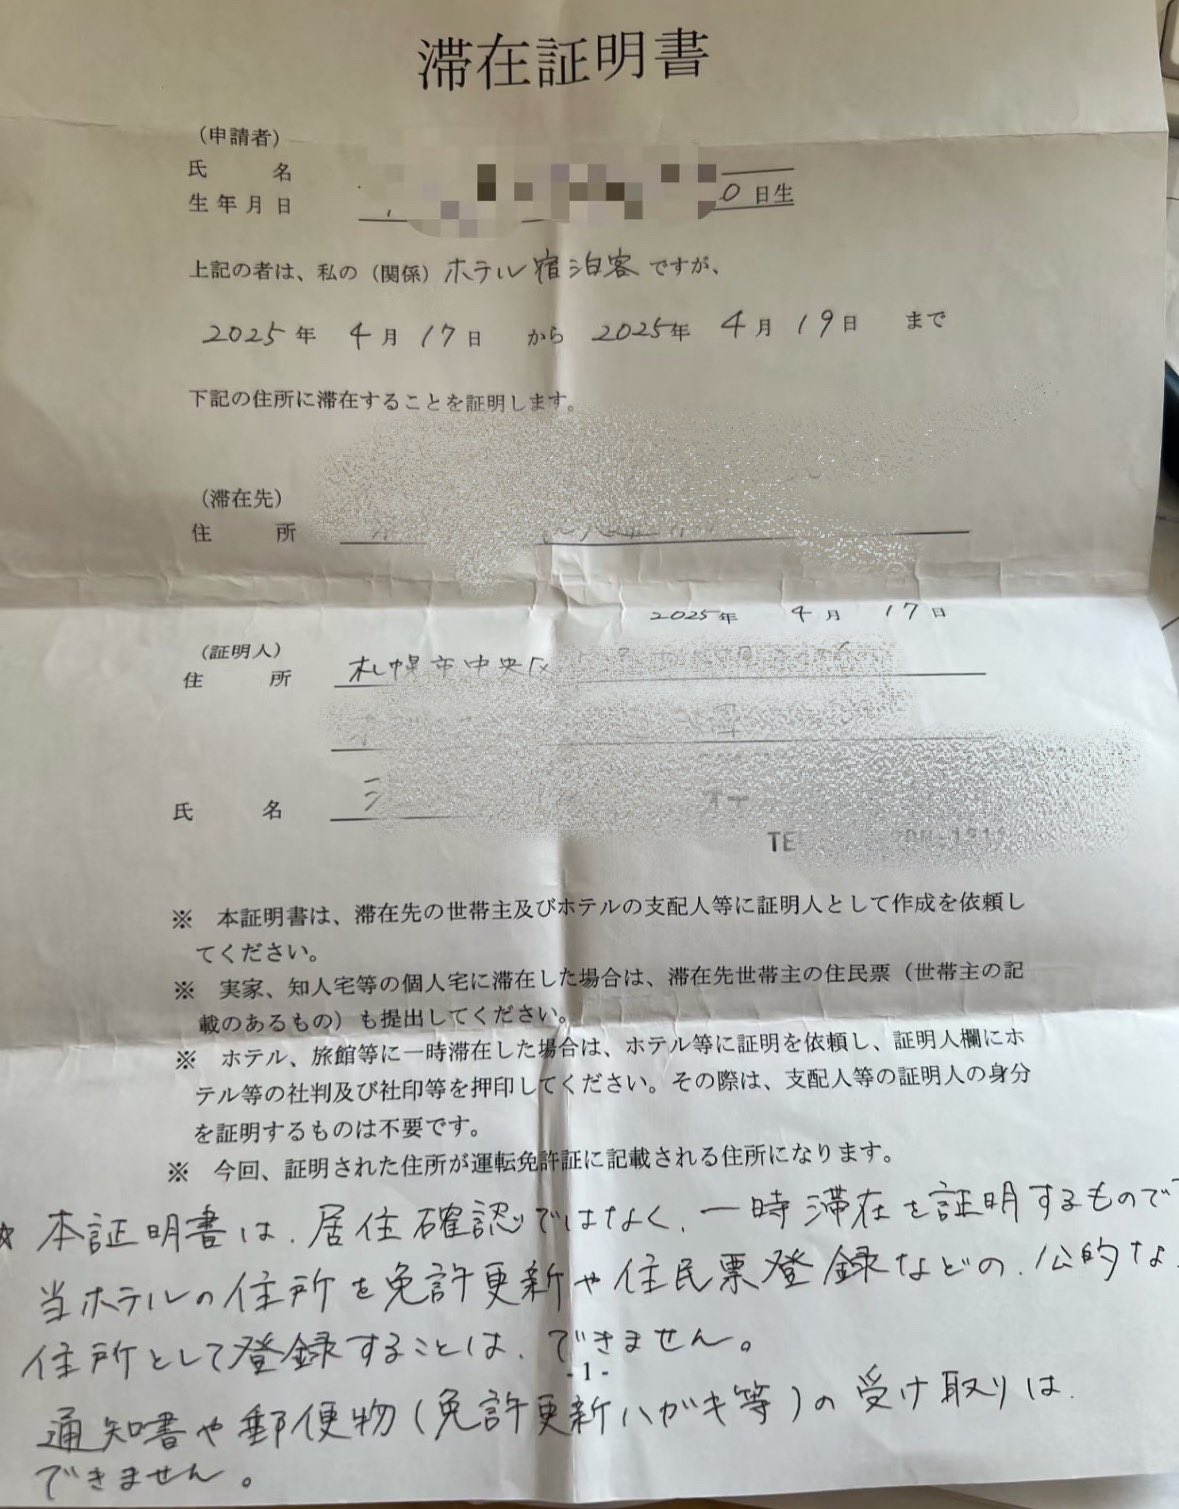 滞在証明書
（申請者）
氏　名
生年月日 0日生
上記の者は、私の（関係）ホテル宿泊客ですが、
2025年 4月 17日 から 2025年 4月 19日 まで
下記の住所に滞在することを証明します。
（滞在先）
住　所
2025年 4月 17日
（証明人）
住　所 札幌市中央区
氏　名
TE
※　本証明書は、滞在先の世帯主及びホテルの支配人等に証明人として作成を依頼し
てください。
※　実家、知人宅等の個人宅に滞在した場合は、滞在先世帯主の住民票（世帯主の記
載のあるもの）も提出してください。
※　ホテル、旅館等に一時滞在した場合は、ホテル等に証明を依頼し、証明人欄にホ
テル等の社判及び社印等を押印してください。その際は、支配人等の証明人の身分
を証明するものは不要です。
※　今回、証明された住所が運転免許証に記載される住所になります。
☆ 本証明書は、居住確認ではなく、一時滞在を証明するもので
当ホテルの住所を免許更新や住民票登録などの、公的な
住所として登録することは、できません。
- 1 -
通知書や郵便物（免許更新ハガキ等）の受け取りは、
できません。